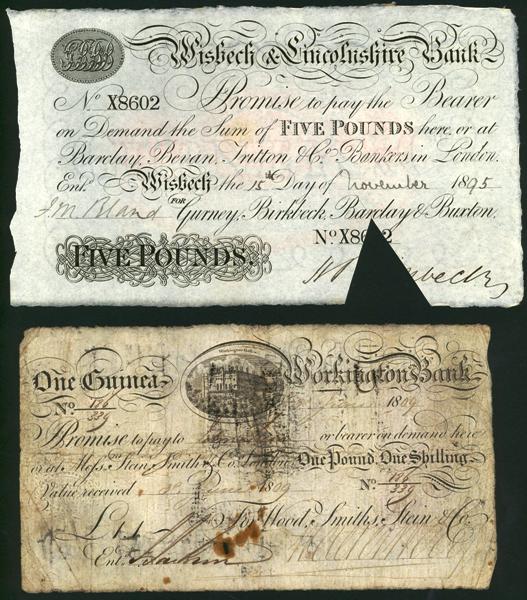 Wisbech & Lincolnshire Bank
No X8602 Promise to pay the Bearer
on Demand the Sum of FIVE POUNDS here or at
Barclay, Bevan, Tritton & Co. Bankers in London.
Entd. Wisbech the 15th Day of November 1895
J M Bland FOR Gurney, Birkbeck, Barclay & Buxton.
No X8602
FIVE POUNDS.
Workington Hall
One Guinea Workington Bank
No 186/339 1809
Promise to pay to or bearer on demand here
or at Messrs. Stein, Smith & Co. London One Pound, One Shilling
Value received June 1809 No 186/339
£1.1.- For Wood, Smiths, Stein & Co.
Entd.